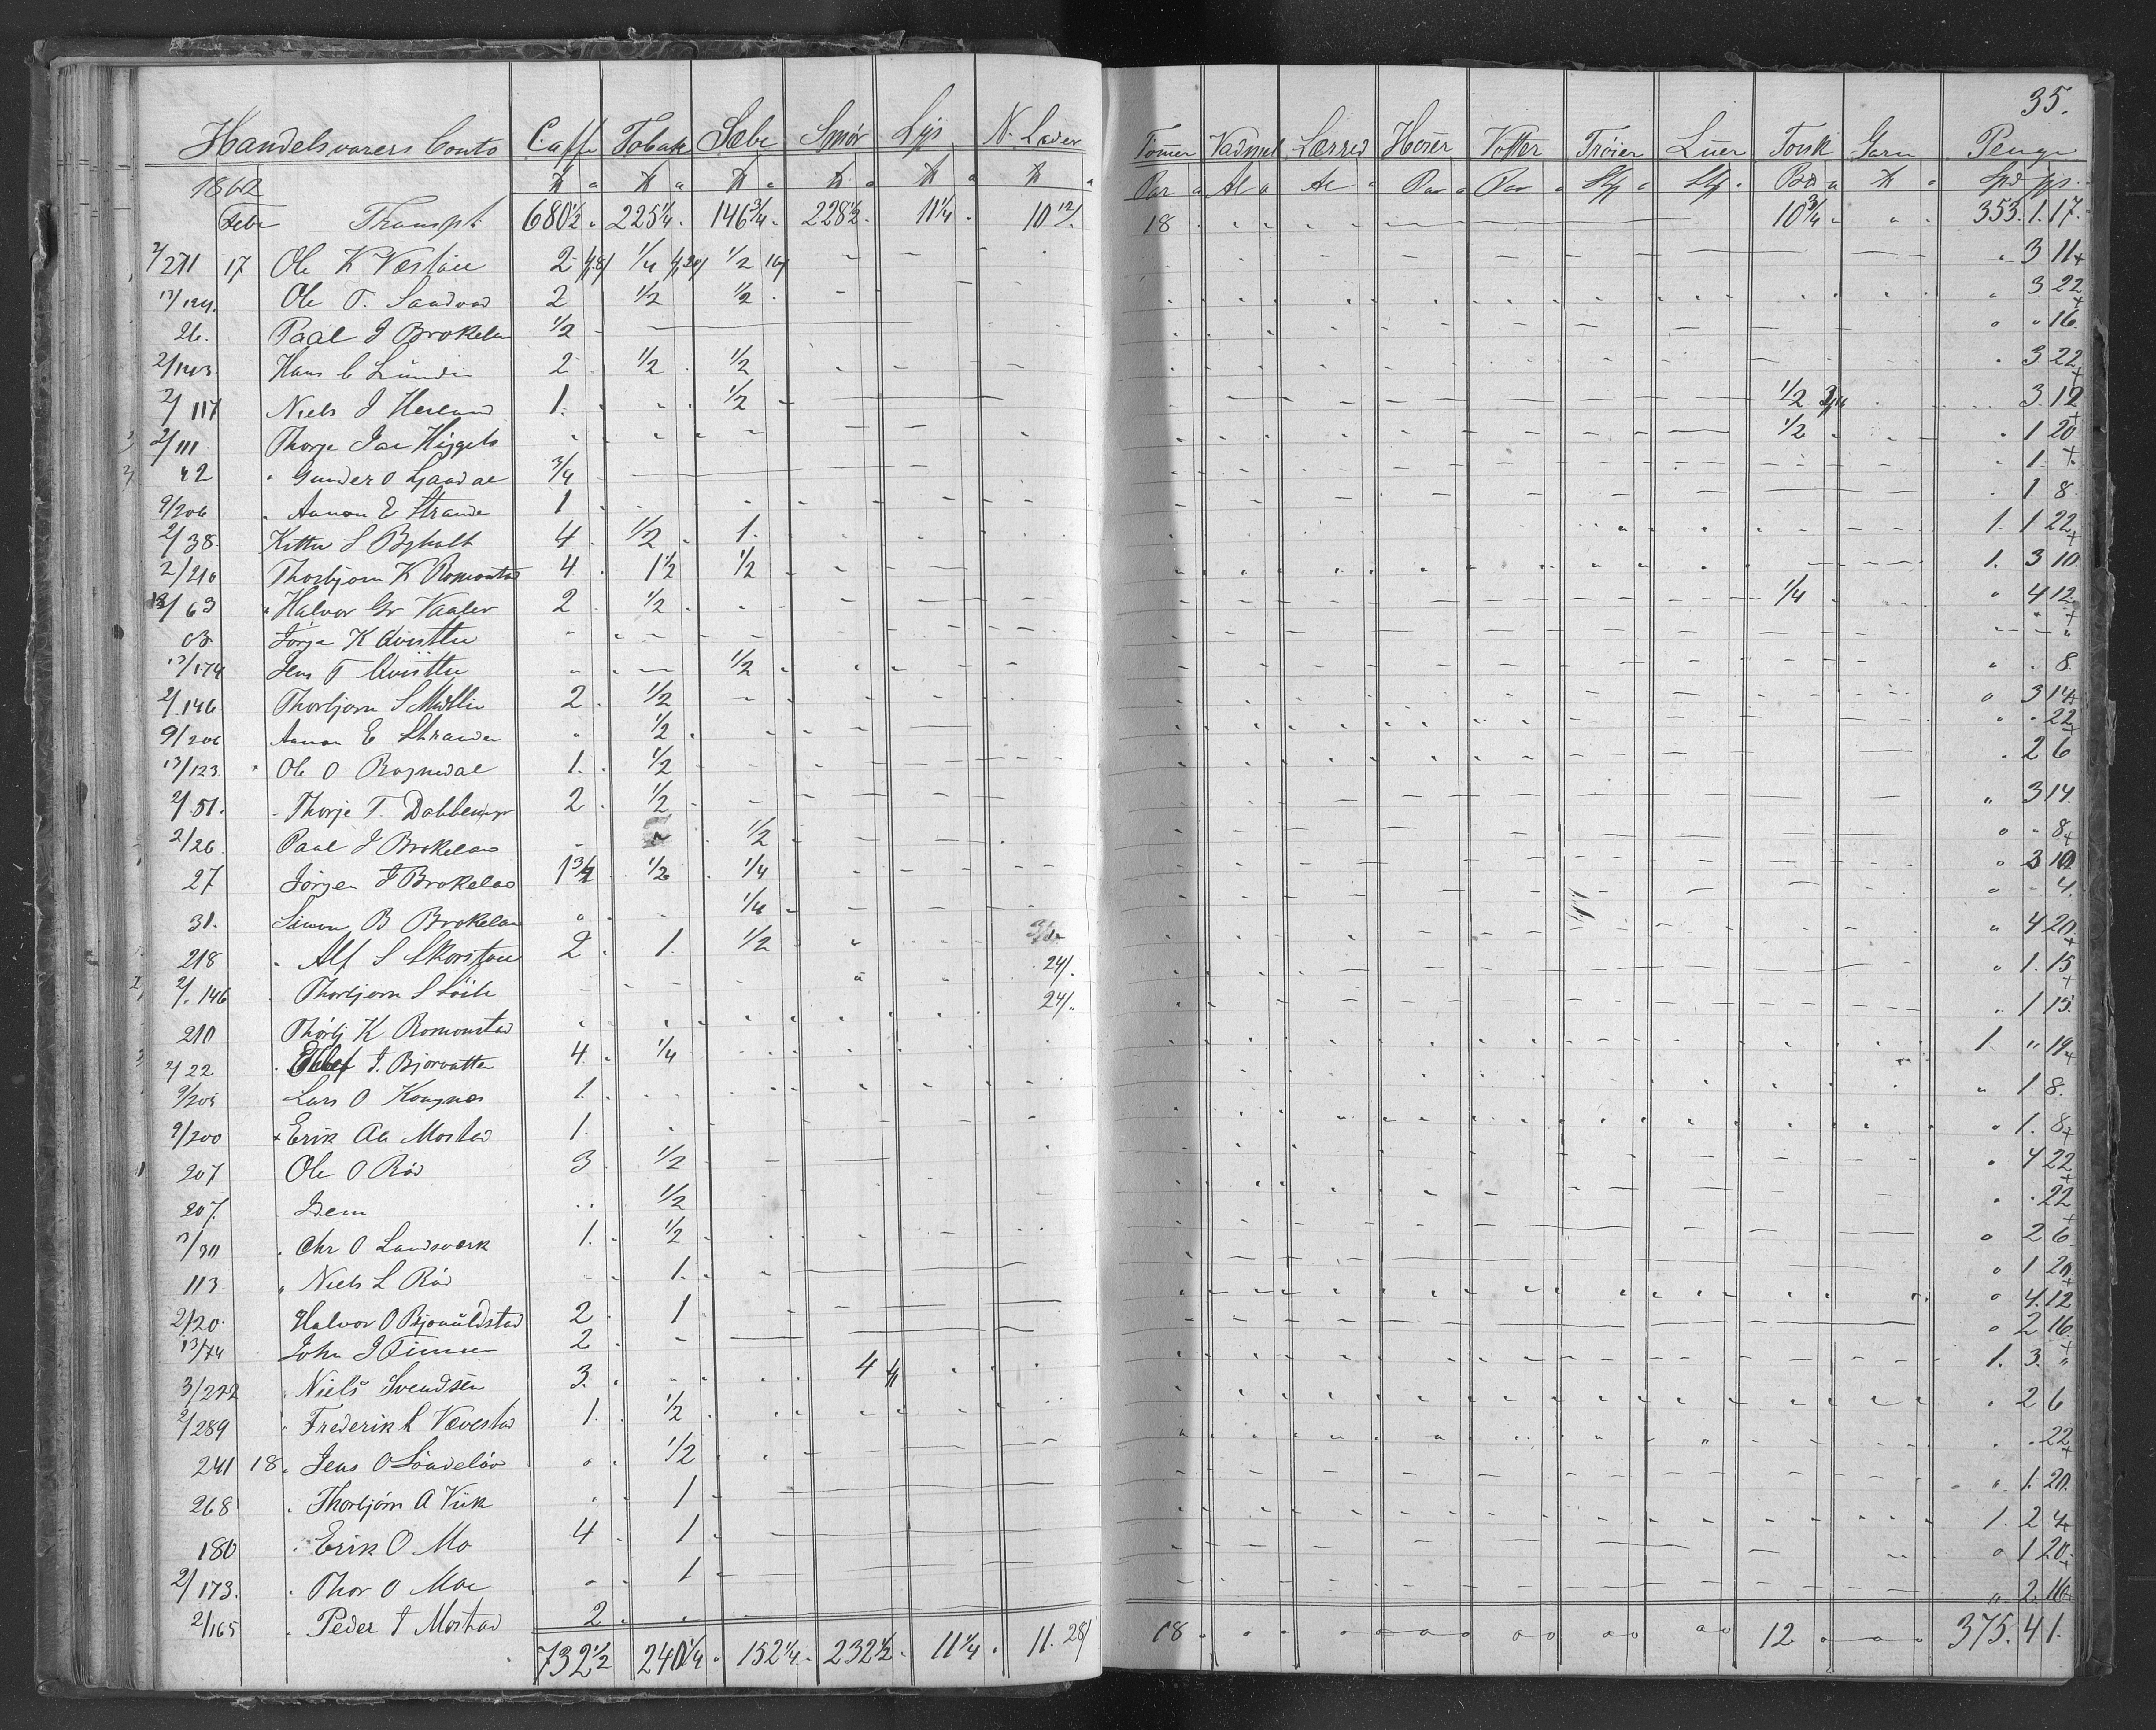 35.
Handelsvarers Conto Caffe Tobak Sæbe Smør Lys N. Læder Tømer Vadmel Lærred Hoser Votter Trøier Luer Torsk Garn Penge
1862 Par Al Al Par Par Stk Stk Spd
Febr Transpt 680 1/2 225 1/4 146 3/4 228 1/2 11 1/4 10 12/ 18 10 3/4 353. 1. 17.
2/271 17 Ole K Væstøl 2 1/4 1/2 16/ 3 11
13/124. Ole T. Sandvad 2 1/2 1/2 3 22
26. Paal J Brokelan 1/2 16
2/143 Hans C Lunden 2 1/2 1/2 3 22
2/117 Niels J Hesland 1. 1/2 1/2 3. 12
2/111 Thorje 1/2 1 20
42 Gunder O Ljaadal 3/4 1.
9/206 Aanon E Strande 1 1 8
2/38. Kittel S Byholt 4 1/2 1. 1. 1 22
2/210 Thorbjørn K Romonstad 4 1 1/2 1/2 1. 3 10
13/63 Halvor Gr Vaaler 2 1/2 1/4 4 12
Jørgen K Qvisttu
13/174 Jens T Qvisttu 1/2 8.
2/146. Thorbjørn S 2 1/2 3 14
9/206 Aanon E Strande 1/2 22
13/123. Ole O Rognedal 1. 1/2 2 6
2/51. Thorje T. 2 1/2 3 14.
2/26. Paal J Brokelan 1/2 8
27 Jørgen J Brokelan 1 3/4 1/2 1/4 3 10
31. Simon B Brokelan 1/4 4.
218 Alf S Skorstøl 2 1. 1/2 4 20
2/146 Thorbjørn S 24/. 1. 15
210 Thorbj K Romonstad 24/. 1 15
2/22 Ellef J. Bjorvatten 4 1/4 1. " 19
9/205 Lars O Kongnæs 1. 1 8.
9/200 Erik Aa Mostad 1. 1. 8
207 Ole O Rød 3 1/2 4 22
207. Dem 1/2 22
13/30 Chr O Landsværk 1. 1/2 2 6
113. Niels L Rød 1. 1 20
2/20. Halvor O Bjonuldstad 2 1 4. 12
13/74 John J Finnsen 2 2 16
3/222 Niels Svendsen 3. 4 1. 3. "
2/289 Frederik L Vævestad 1. 1/2 2 6
241 18. Jens O Søndeløv 1/2 22
268 Thorbjørn A Viik 1 1. 20.
180 Erik O Mo 4 1. 1. 2 4
2/173. Thor O Moe 1 1 20
2/165 Peder T Mostad 2 2. 16
732 1/2 240 1/4 152 1/4 232 1/2 11 1/4 11. 28/ 18 12 375. 4 1.